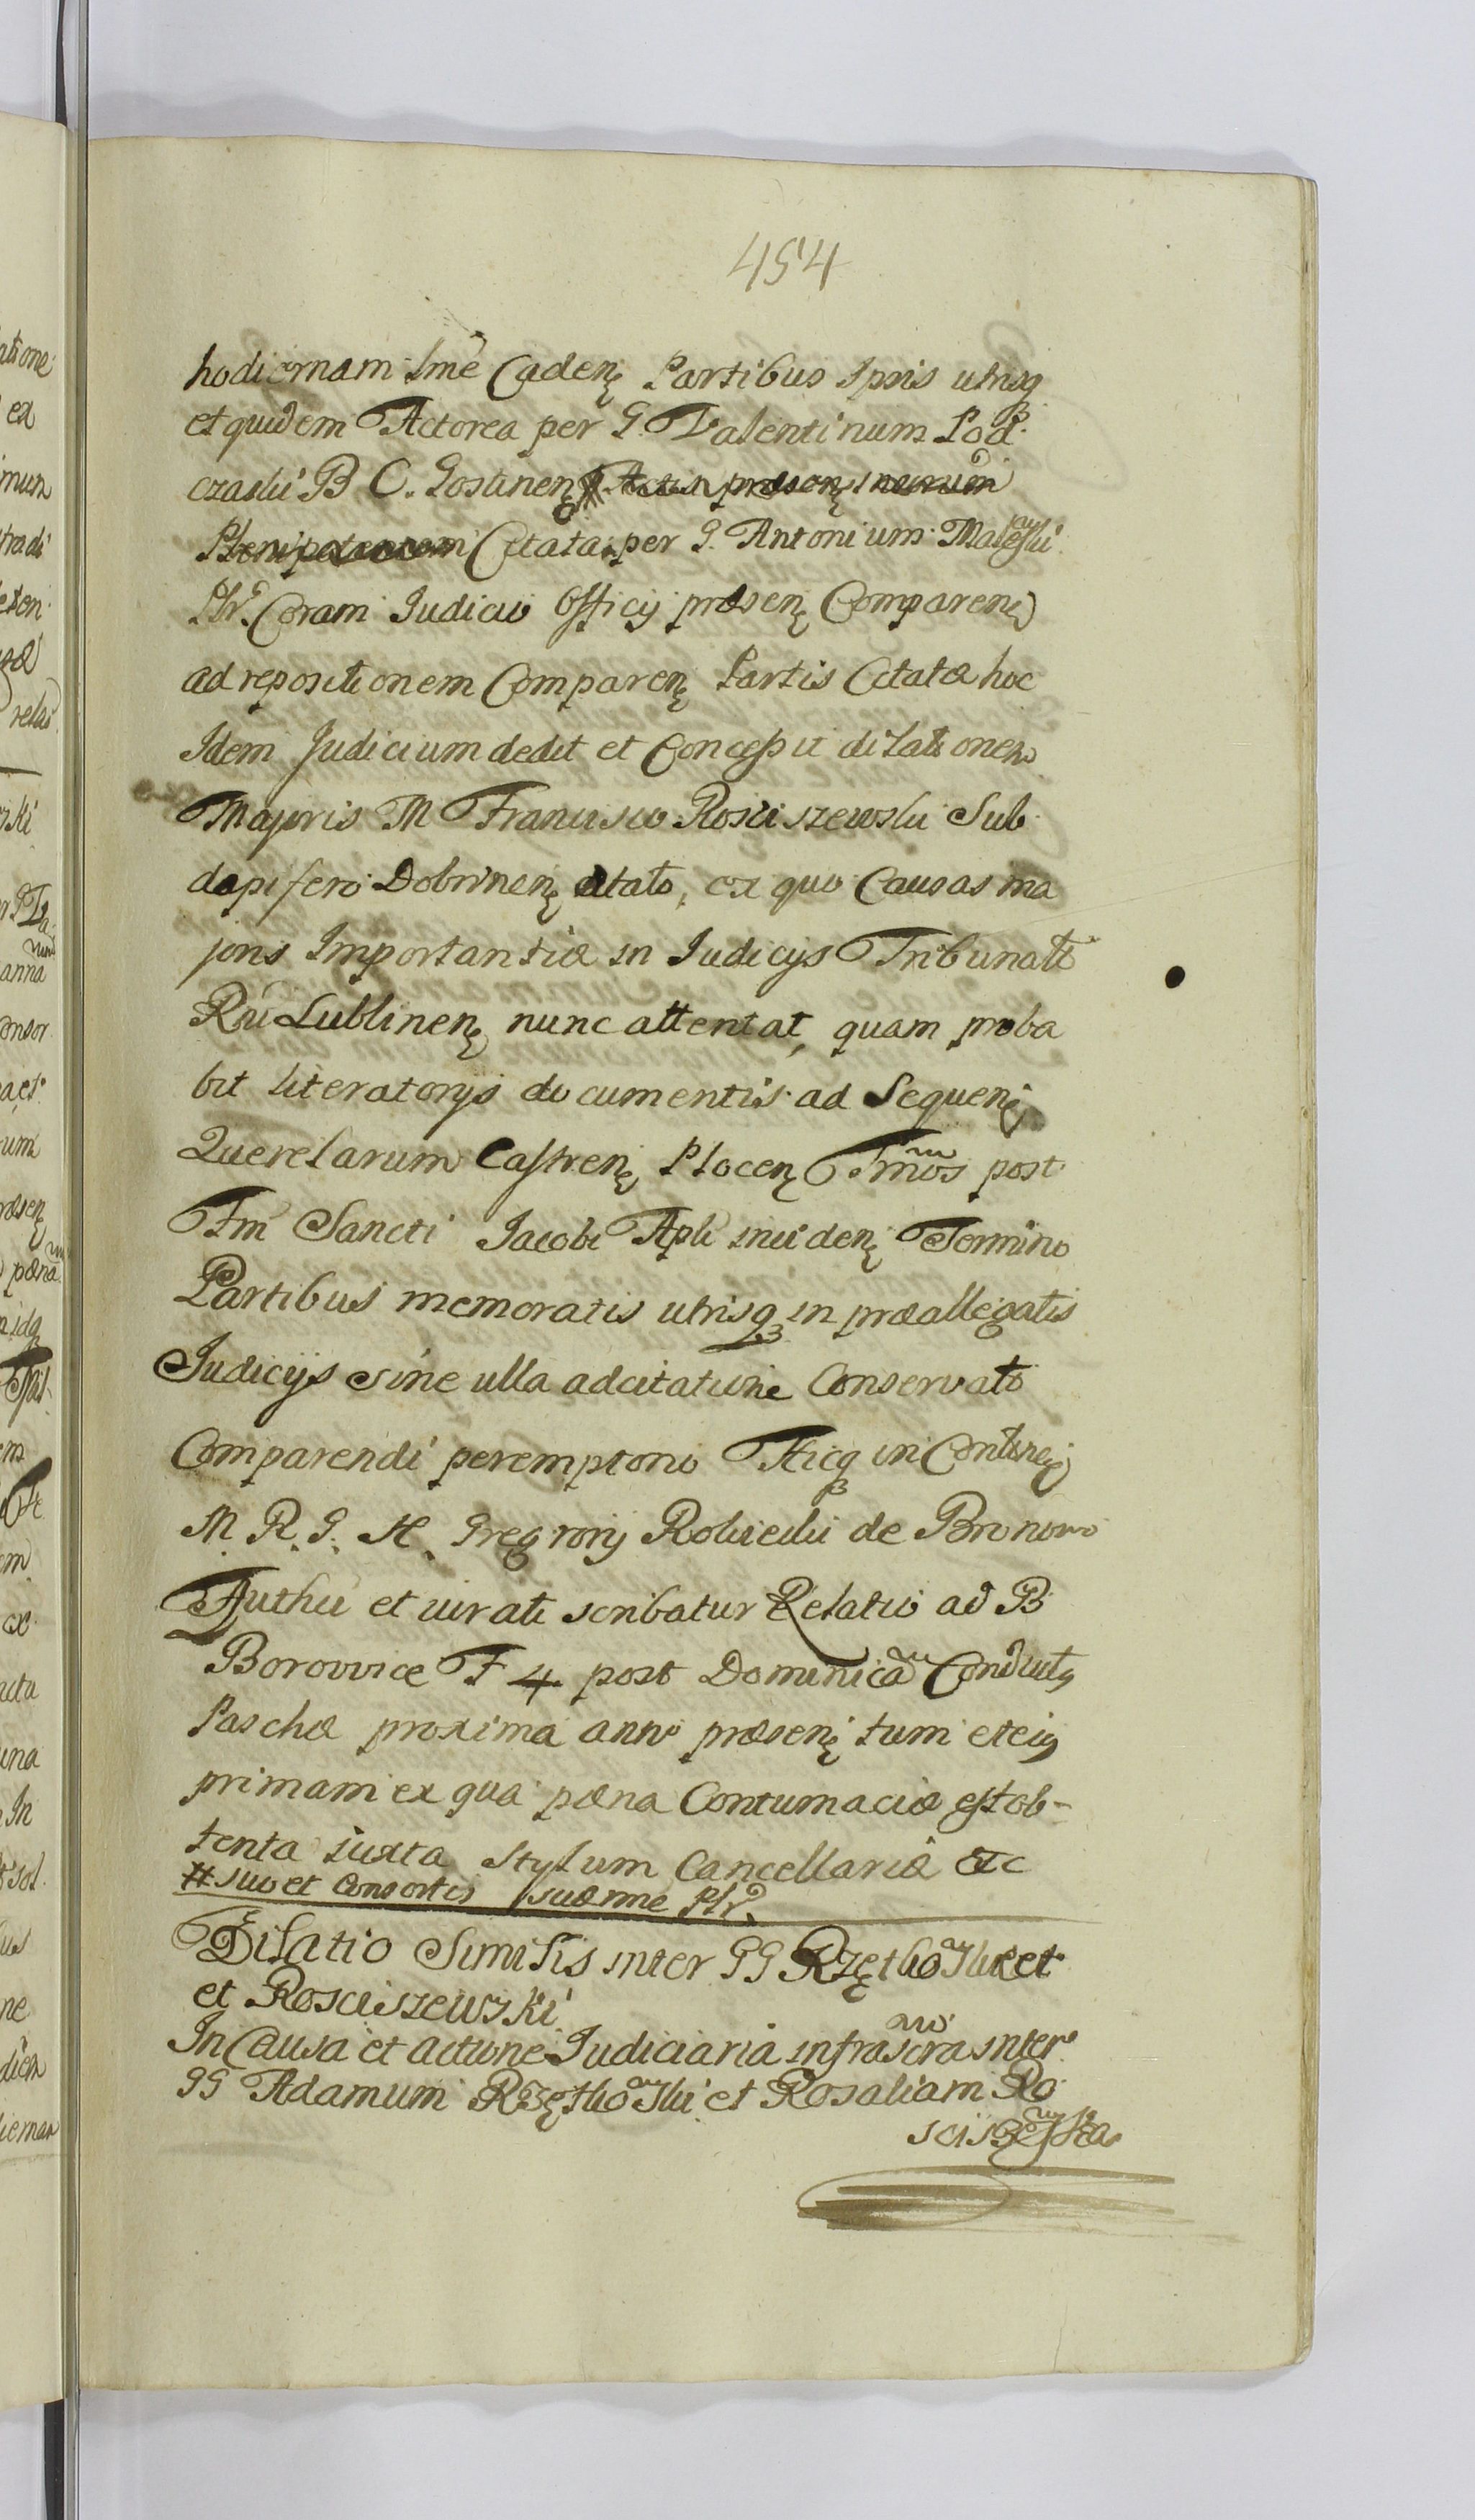 454
hodiernam lmẽ Cadenę Partibus Ipsis utrisq
et quidem Actorea per G. Valentinum Pod
czaski B C. Gostinenę # Actis præsenę
Plenipotentem Citata per G. Antonium Maleski
Plr. Coram Judicio Officij præsenę Comparenę
ad repositionem Comparenę Partis Citatæ hoc
Idem Judicium dedit et Concessit dilationem
Majoris M Francisco Rosciszewski Sub
dapifero Dobrinenę citato, ex quo Causas ma
joris Importantiæ in Judicijs Tribunalt
Rni Lublinenę nunc attentat, quam proba
bit literatorijs documentis ad Sequenę
Querelarum Castrenę Plocenę Tmos post
Fm Sancti Jacobi Apli incidenę Termino
Partibus memoratis utrisq in præallegatis
Judicijs sine ulla adcitatione Conservato
Comparendi peremptorio
M. R. G. H. Gregrorij Robiecki de Bronowo
Authu et jurati scribatur Relatio ad B
Borowice F 4 post Dominica Conductus
Paschæ proxima anno præsenę tum et eius
primam ex qua pæna Contumaciæ est ob-
tenta juxta Stylum Cancellariæ etc
# suo et Consortis suæ nne Plr.
Dilatio Similis inter GG Rzętkoski et
et Rosciszewski
In Causa et actione Judiciaria infrascra inter
GG Adamum Rzętkoski et Rosaliam Ro
sciszeska